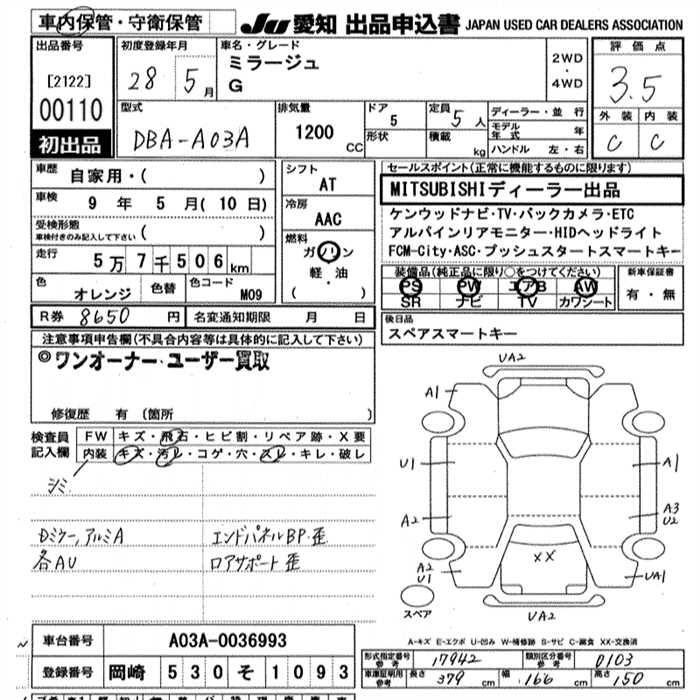 車内保管・守衛保管
JU 愛知 出品申込書 JAPAN USED CAR DEALERS ASSOCIATION
出品番号
[2122]
00110
初出品
初度登録年月
28 5月
車名・グレード
ミラージュ
G
2WD
・
4WD
評価点
3.5
外装 内装
C C
型式
DBA-A03A
排気量
1200 CC
ドア
5
形状
定員
5人
積載
kg
ディーラー・並行
モデル年式 年
ハンドル 左・右
車歴
自家用・( )
車検
9 年 5 月( 10 日)
受検形態
車検付きのみ記入して下さい ( )
走行
5万7千506km
色
オレンジ
色替
色コード
M09
シフト
AT
冷房
AAC
燃料
ガソリン
軽・油
( )
セールスポイント(正常に機能するものに限ります)
MITSUBISHIディーラー出品
ケンウッドナビ・TV・バックカメラ・ETC
アルパインリアモニター・HIDヘッドライト
FCM-City・ASC・プッシュスタートスマートキー
装備品(純正品に限り○をつけてください)
PS PW エアB AW
SR ナビ TV カワシート
新車保証書
有・無
R券 8650 円
名変通知期限 月 日
後日品
スペアスマートキー
注意事項申告欄(不具合内容等は具体的に記入して下さい)
◎ワンオーナー・ユーザー買取
修復歴 有 (箇所 )
検査員
記入欄
FW キズ・飛石・ヒビ割・リペア跡・X要
内装 キズ・汚レ・コゲ・穴・スレ・キレ・破レ
シミ
Dミラー,アルミA
各AU
エンドパネルBP・歪
ロアサポート歪
UA2
A1
U1
A1
A2
A3
U2
XX
A2
U1
UA1
スペア
UA2
A-キズ E-エクボ U-凹み W-補修跡 S-サビ C-腐食 XX-交換済
車台番号
A03A-0036993
登録番号
岡崎 530 そ 1093
形式指定番号
参考
17942
類別区分番号
参考
0103
車庫証明用
参考
長さ 379 cm
幅 166 cm
高さ 150 cm